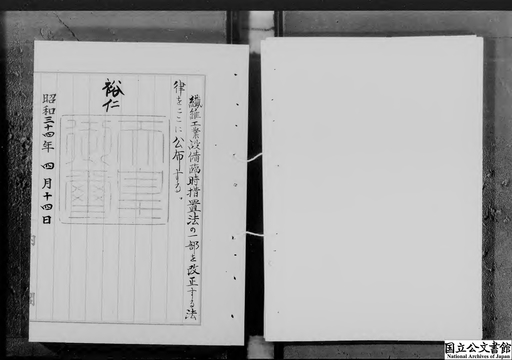 繊維工業設備臨時措置法の一部を改正する法
律をここに公布する。
裕仁
天皇
御璽
昭和三十四年四月十四日
国立公文書館
National Archives of Japan